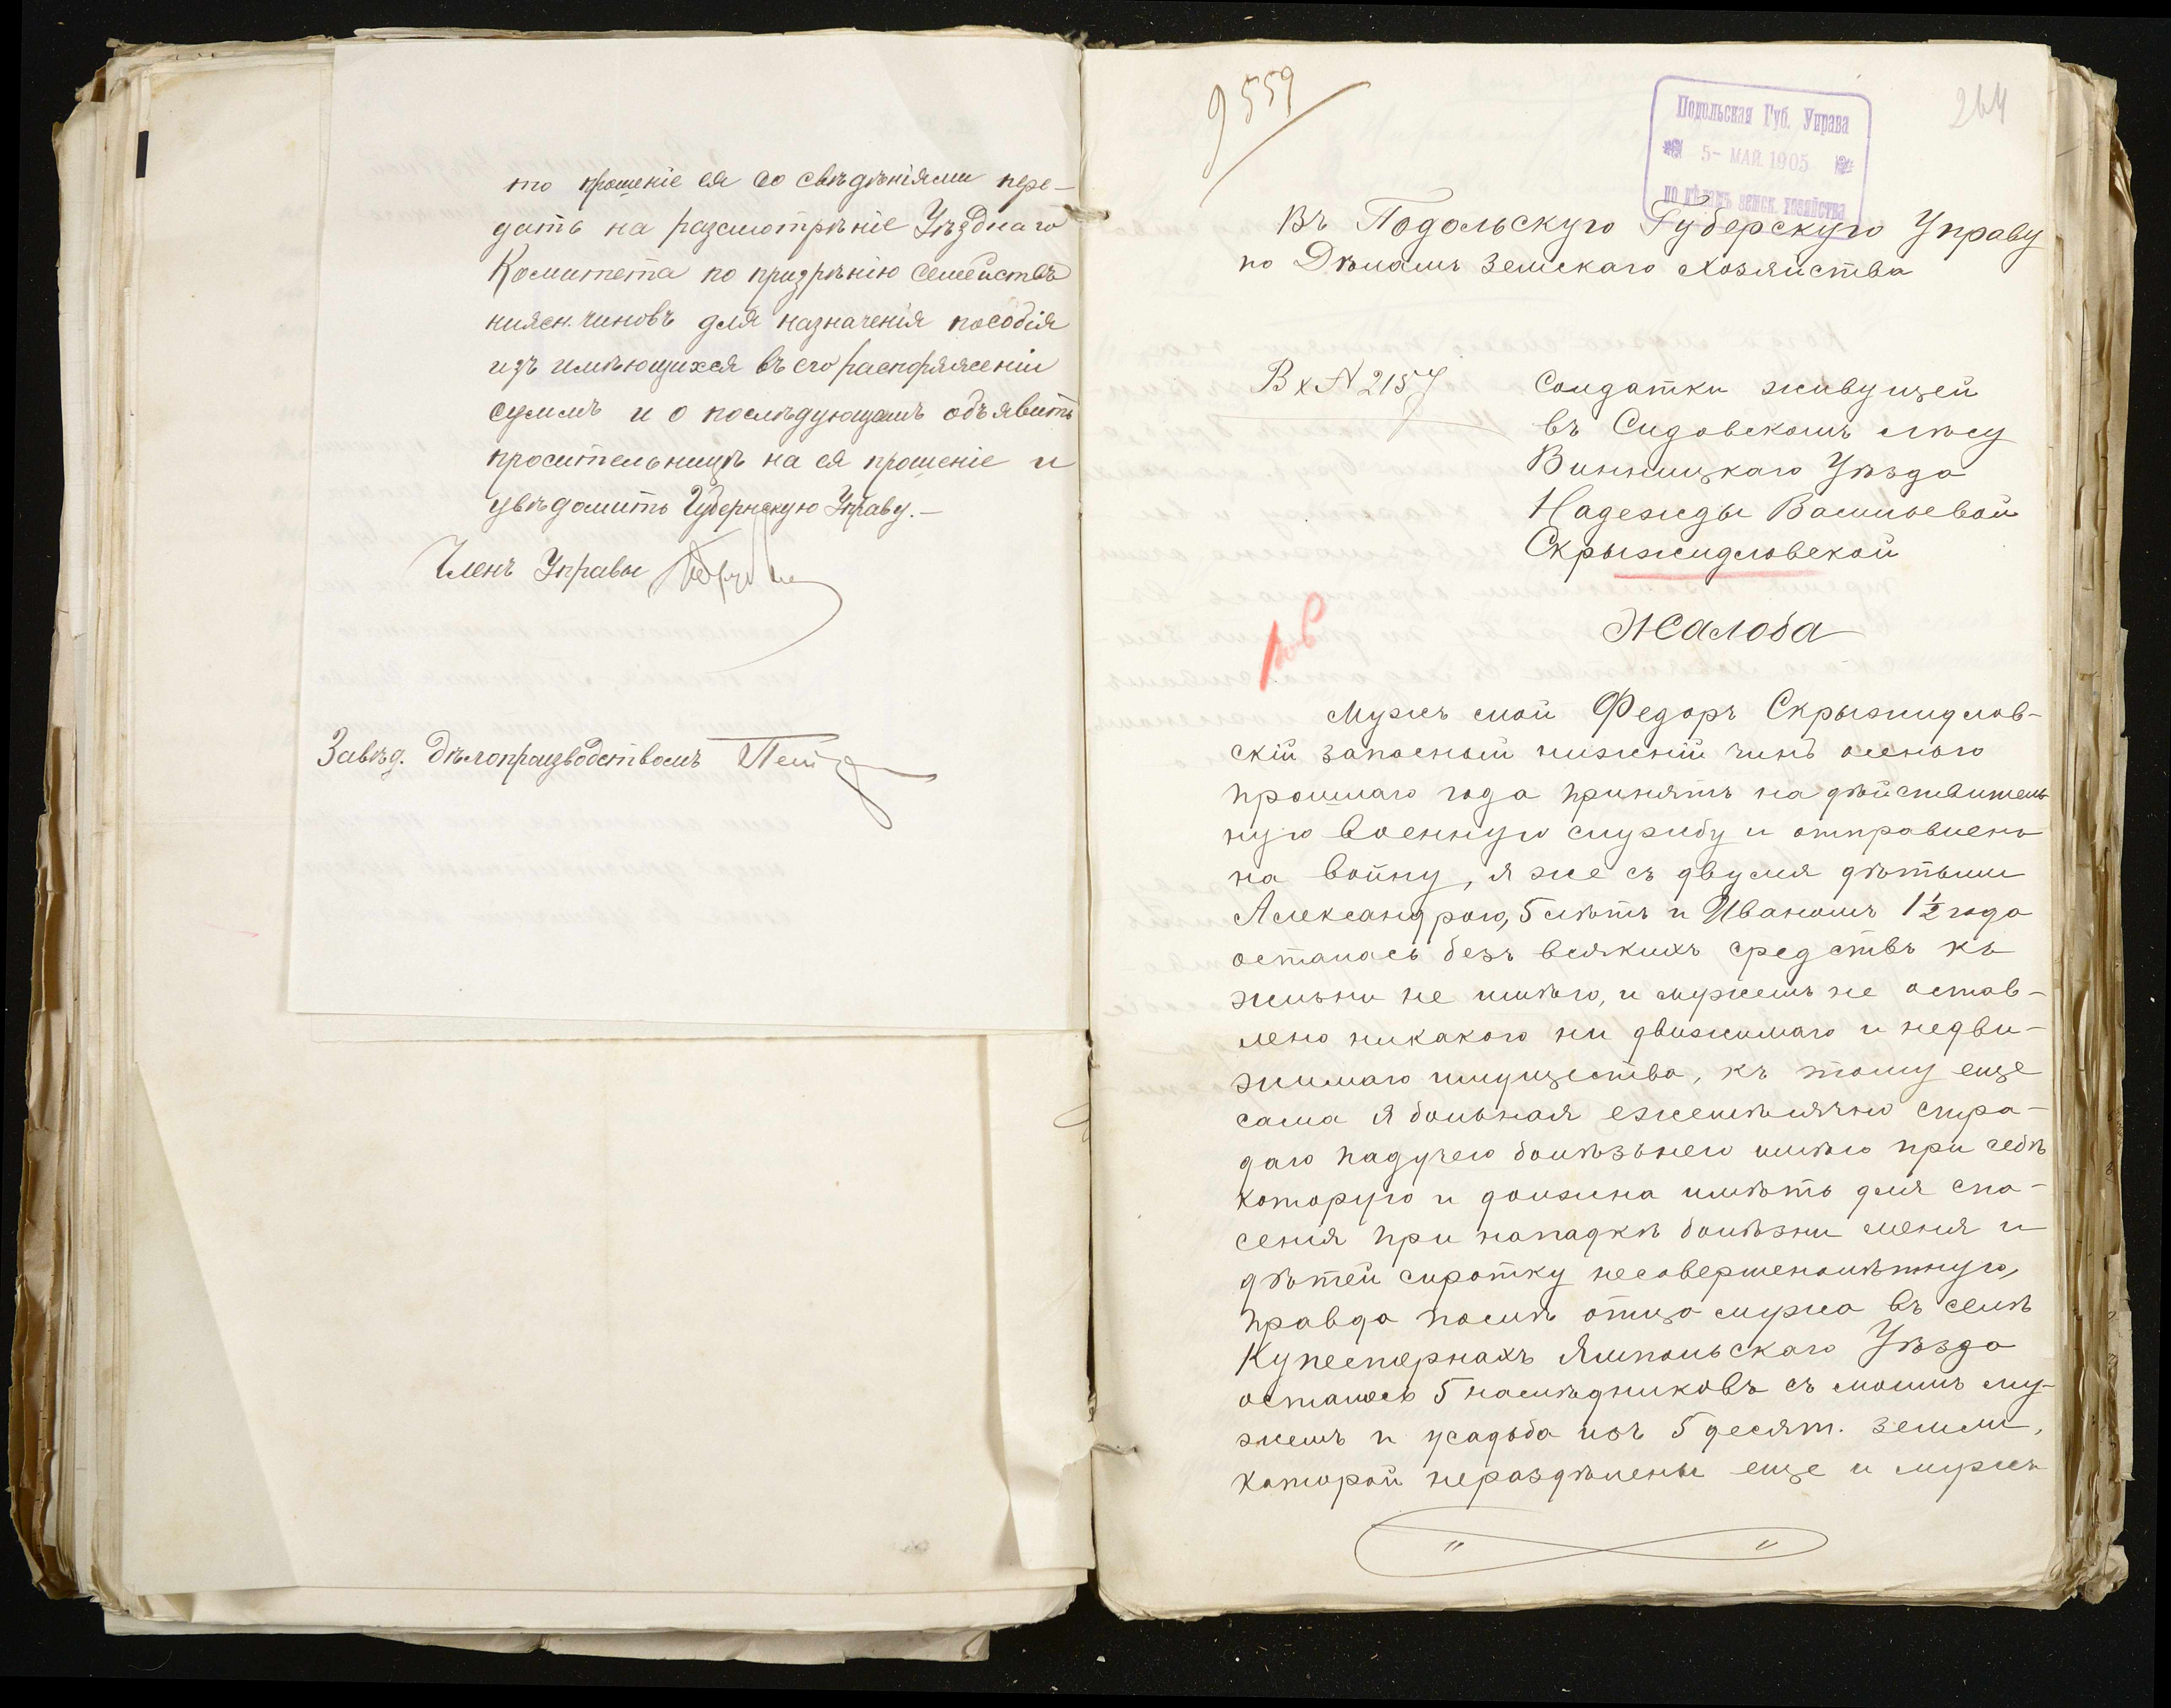 то прошеніе ея со свѣдѣніями пере-
дать на разсмотрѣніе Уѣзднаго
Комитета по призрѣнію семействъ
нижн. чиновъ для назначенія пособія
изъ имѣющихся въ его распоряженіи
суммъ и о послѣдующемъ объявить
просительницѣ на ея прошеніе и
увѣдомить Губернскую Управу.-
Членъ Управы
Завѣд. дѣлопроизводствомъ
9559
264
Подольская Губ. Управа
5- МАЙ. 1905
по дѣламъ земск. хозяйства
Въ Подольскую Губерскую Управу
по Дѣламъ Земскаго Хозяйства
Вх N 2157
Солдатки живущей
въ Сидовскомъ лѣсу
Винницкаго Уѣзда
Надежды Васильевой
Скрыжидловской
Жалоба
Мужъ мой Федоръ Скрыжидлов-
скій запасный нижній чинъ осеню
прошлаго года принятъ на дѣйствитель
ную военную службу и отправленъ
на войну, я же съ двумя дѣтьми
Александрою, 5 лѣтъ и Иваномъ 1½ года
осталась безъ всякихъ средствъ къ
жизьни не имѣю, и мужемъ не остав-
лено никакого ни движимаго и недви-
жимаго имущества, къ тому еще
сама я больная ежемѣсячно стра-
даю падучею болѣзьнею имѣю при себѣ
которую и должна имѣть для спа-
сенія при нападкѣ болѣзни меня и
дѣтей сиротку несовершенолѣтную,
правда послѣ отца мужа въ селѣ
Купестернахъ Ямпольскаго Уѣзда
осталось 5 наслѣдниковъ съ моимъ му-
жемъ и усадьба изъ 5 десят. земли,
которой нераздѣлены еще и мужъ